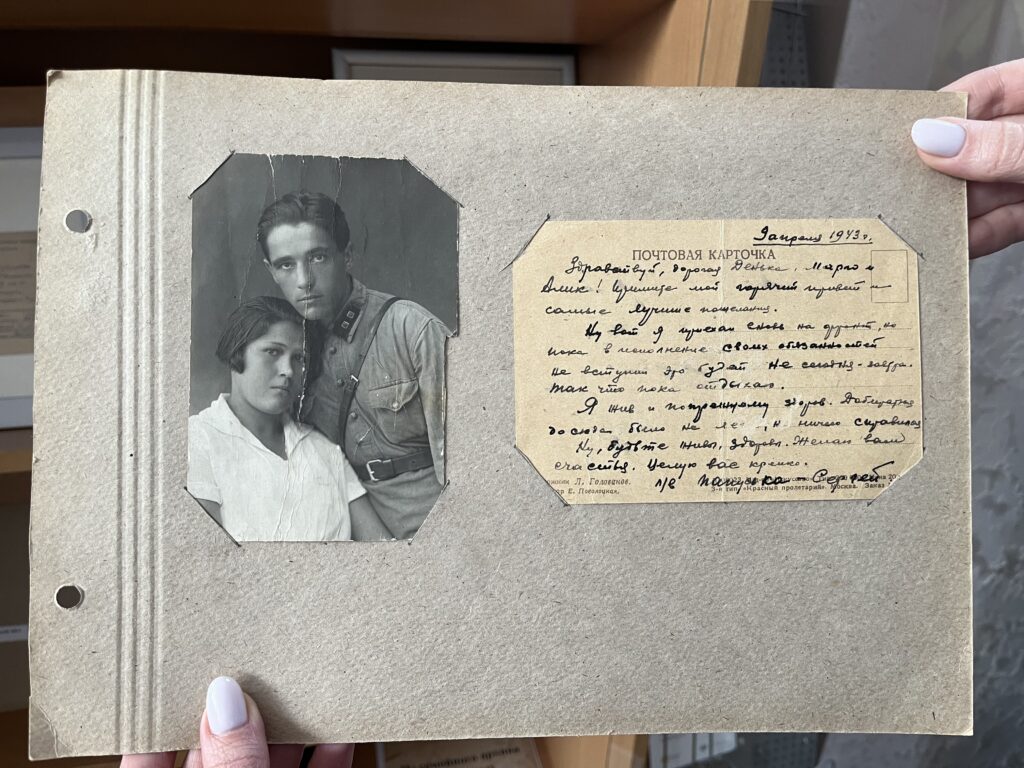 9 апреля 1943 г.
ПОЧТОВАЯ КАРТОЧКА
Здравствуй, дорогая Денька, Марго и
Алик! Примите мой горячий привет и
самые лучшие пожелания.
Ну вот я приехал вновь на фронт, но
пока в исполнение своих обязанностей
не вступил это будет не сегодня-завтра.
Так что пока отдыхаю.
Я жив и попрежнему здоров. Добираться
до сюда было не легко, но ничего справился
Ну, будьте живы, здоровы. Желаю вам
счастья. Целую вас крепко.
Л. Голованов.
п/в папулька – Сергей
Е. Поволоцкая.
3-я тип. «Красный пролетарий». Москва. Заказ